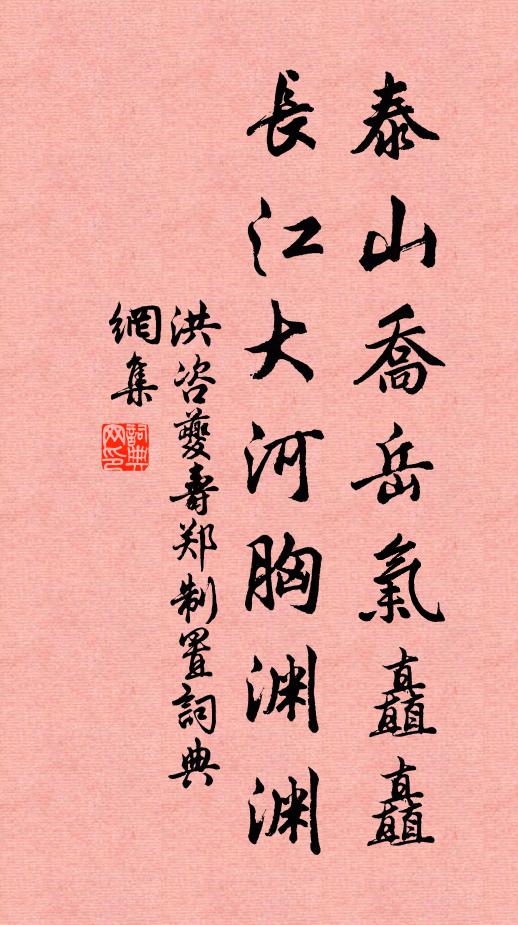 泰山喬岳氣矗矗
長江大河胸渊渊
洪咨夔壽郑制置詞典
網集
詞典网印